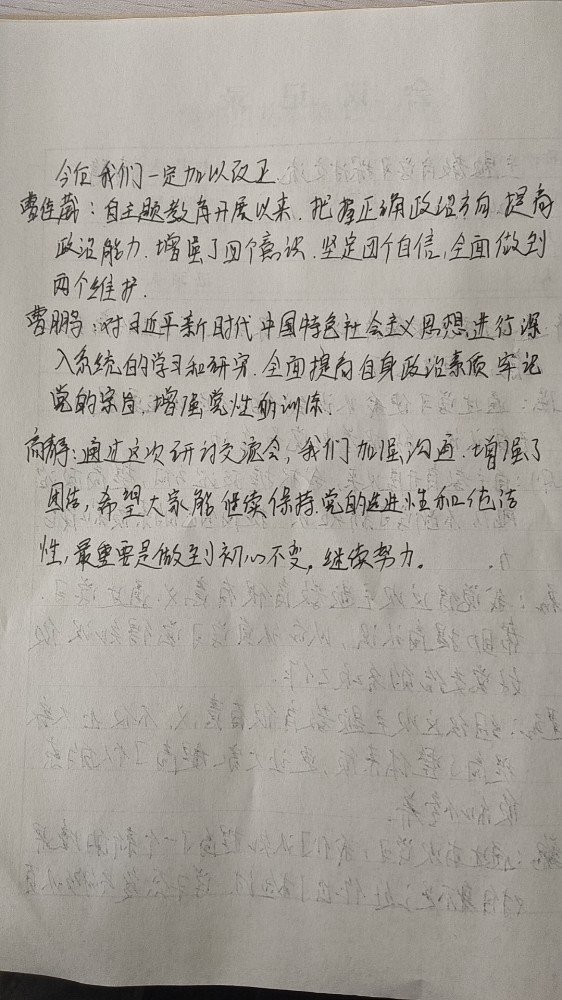 今后我们一定加以改正.
曹佳薇:自主题教育开展以来.把握正确政治方向.提高
政治能力.增强了四个意识.坚定四个自信,全面做到
两个维护.
曹鹏:对习近平新时代中国特色社会主义思想进行深
入系统的学习和研究.全面提高自身政治素质牢记
党的宗旨,增强党性的训练.
高静:通过这次研讨交流会,我们加强沟通.增强了
团结,希望大家能继续保持.党的先进性和纯洁
性,最重要是做到初心不变。继续努力。